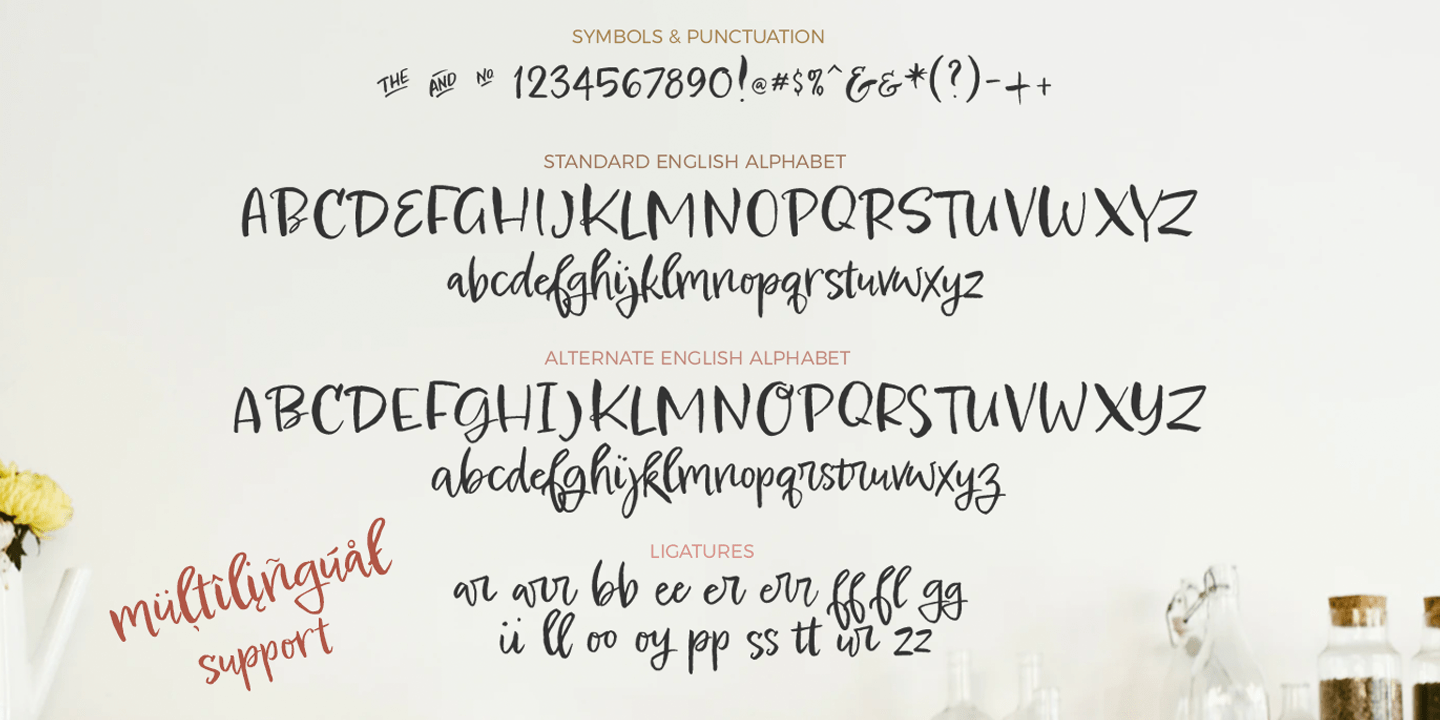 SYMBOLS & PUNCTUATION
THE AND NO 1234567890!@#$%^&&*(?)-++
STANDARD ENGLISH ALPHABET
ABCDEFGHIJKLMNOPQRSTUVWXYZ
abcdefghijklmnopqrstuvwxyz
ALTERNATE ENGLISH ALPHABET
ABCDEFGHIJKLMNOPQRSTUVWXYZ
abcdefghijklmnopqrstruvwxyz
LIGATURES
ar arr bb ee er err ff fl gg
ii ll oo oy pp ss tt ur zz
müļtîlįñgúåł
support